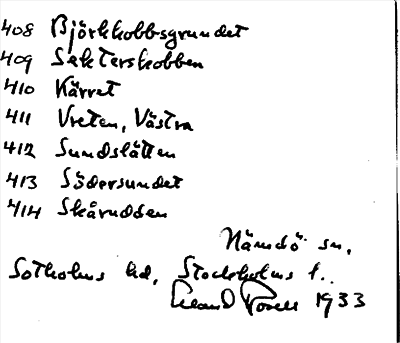 408 Björkkobbsgrundet
409 Sekterskobben
410 Kärret
411 Vreten, Västra
412 Sundslätten
413 Södersundet
414 Skårudden
Nämdö sn.
Sotholms hd, Stockholms l.
1933